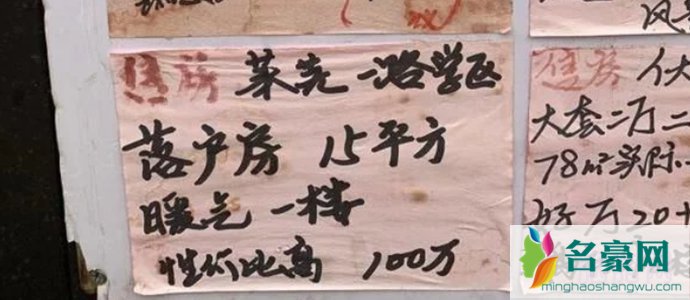 售房 莱芜一路学区
落户房 15平方
暖气 一楼
性价比高 100万
售房
大套二厅二
78㎡实际
好 万 20
名豪网
minghaoshangwu.com